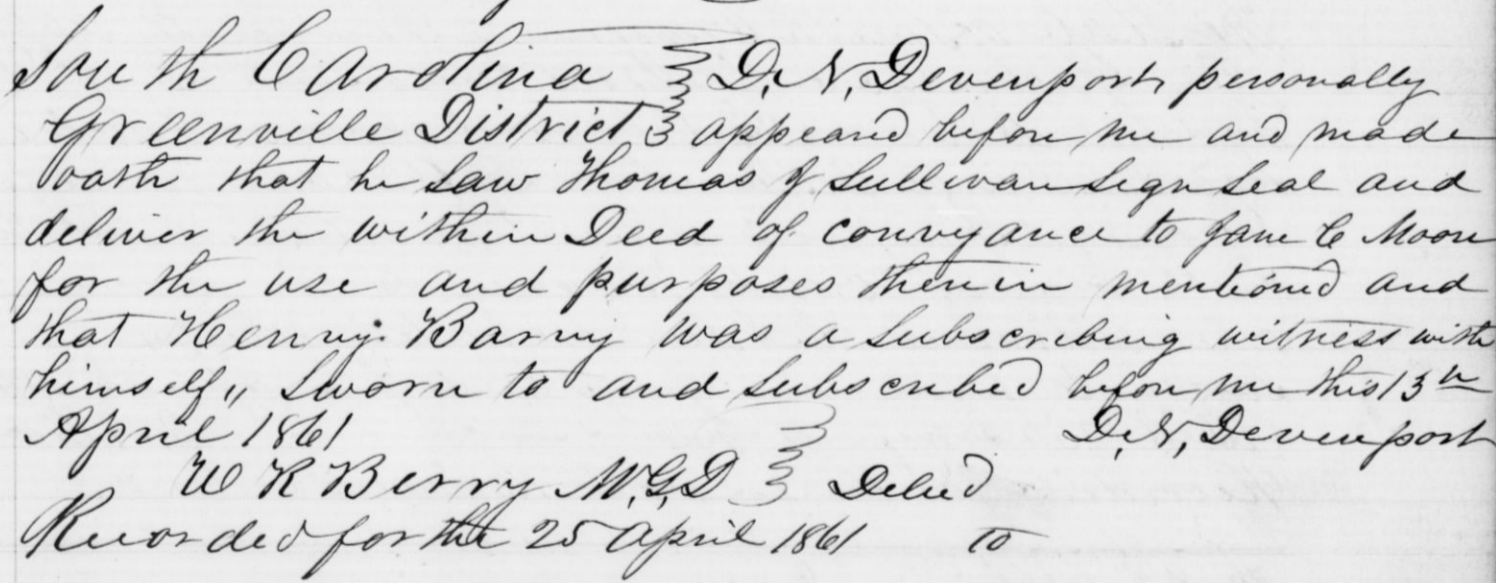 South Carolina } D. N. Devenport personally
Greenville District } appeared before me and made
oath that he saw Thomas J Sullivan sign seal and
deliver the within Deed of conveyance to Jane C Moore
for the use and purposes therein mentioned and
that Henry Barry was a subscribing witness with
himself,, Sworn to and subscribed before me this 13th
April 1861 } D. N. Devenport
W R Berry M.G.D } Delied
Recorded for the 25 April 1861 to